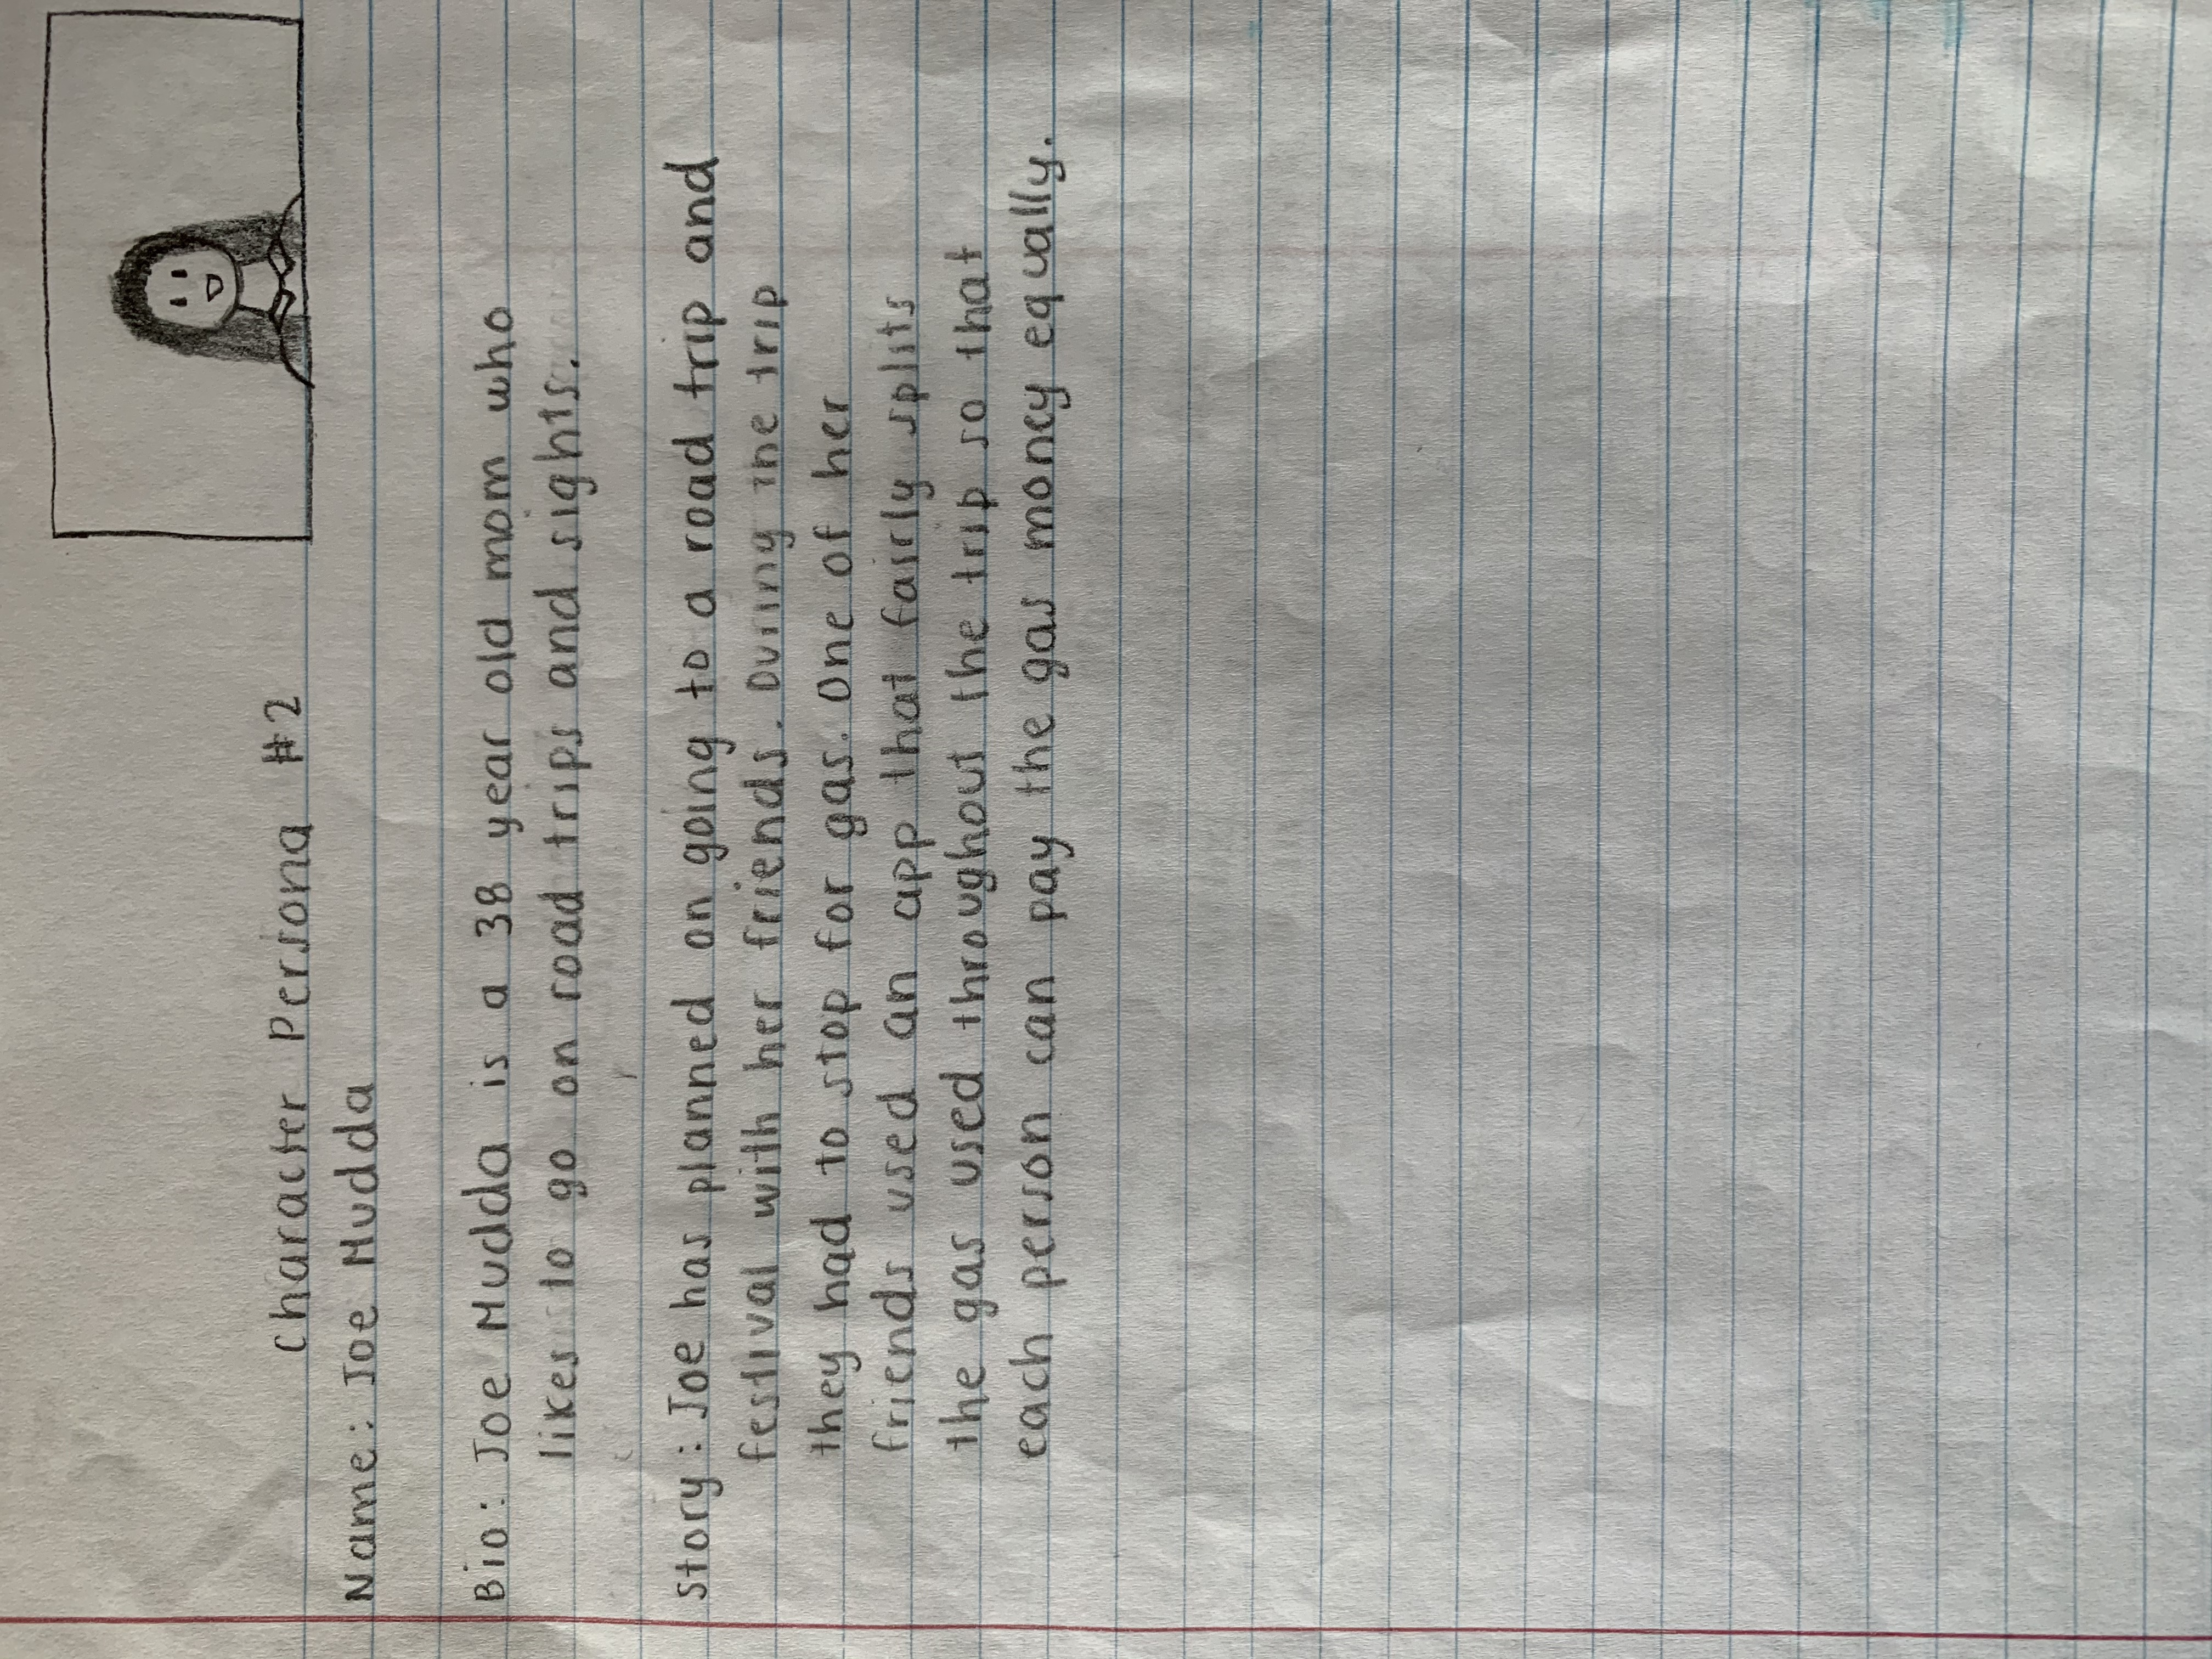 Character Persona #2
Name: Joe Mudda
Bio: Joe Mudda is a 38 year old mom who
likes to go on road trips and sights.
Story: Joe has planned on going to a road trip and
festival with her friends. During the trip
they had to stop for gas. One of her
friends used an app that fairly splits
the gas used throughout the trip so that
each person can pay the gas money equally.